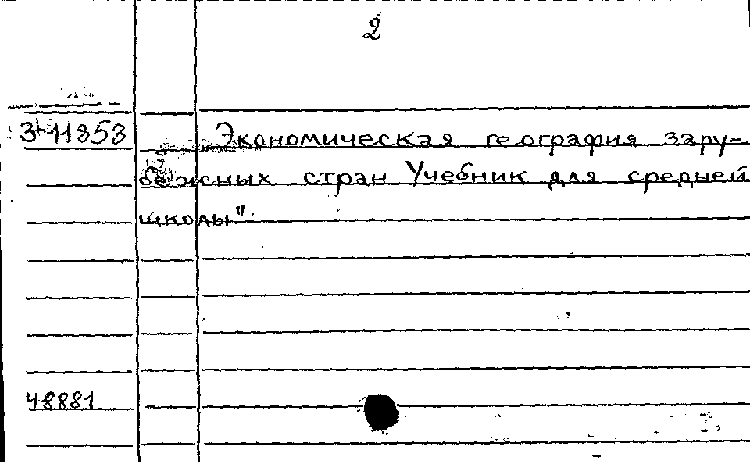 2
З-11353
Экономическая география зару-
бежных стран Учебник для средней
школы".
48881